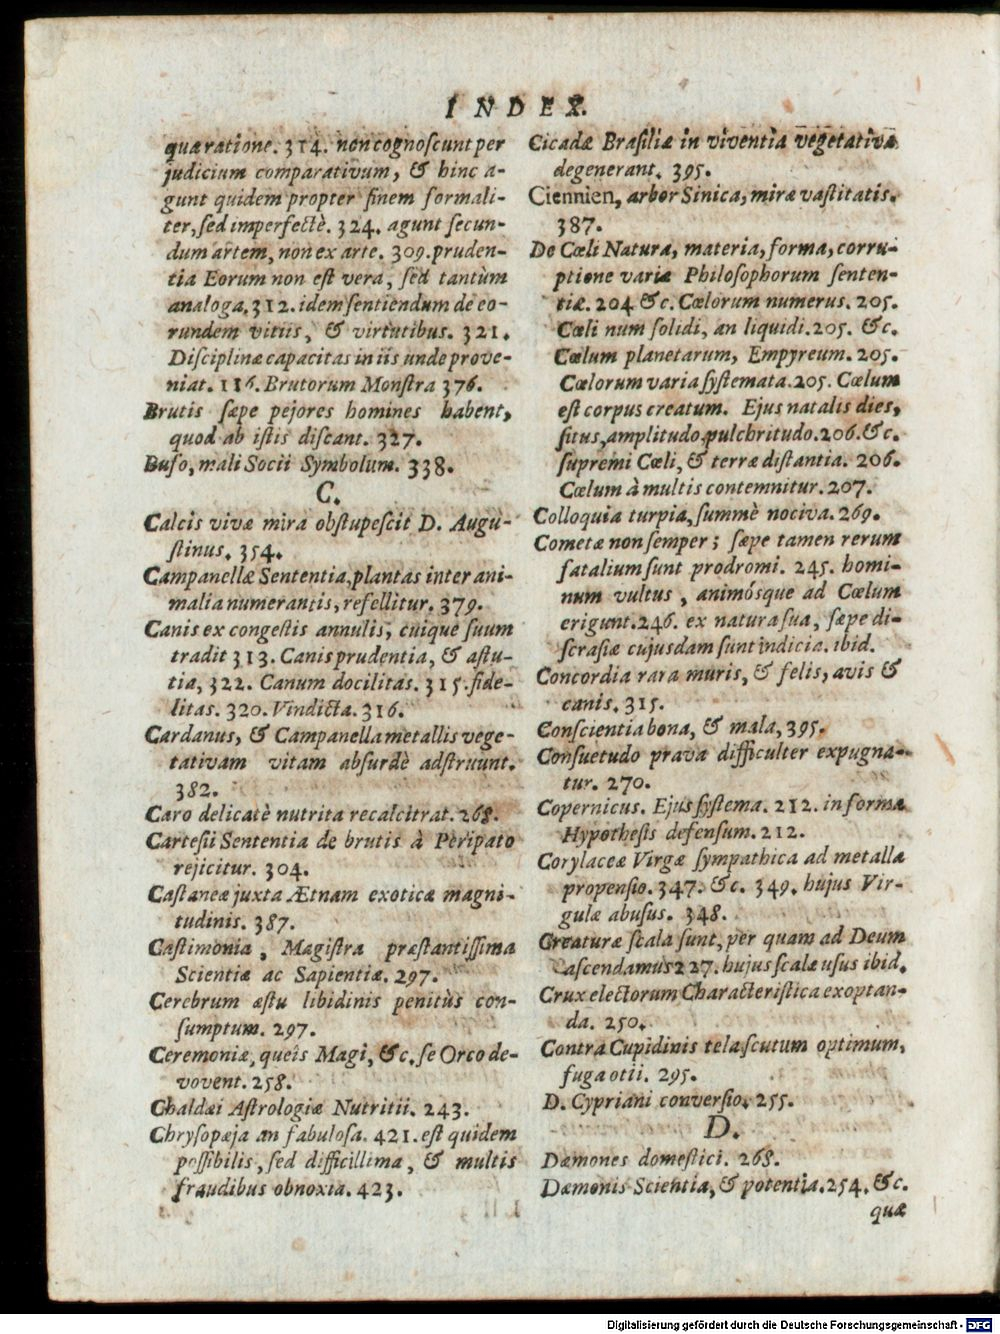 INDEX.
quæ ratione. 314. non cognoscunt per
judicium comparativum, & hinc a-
gunt quidem propter finem formali-
ter, sed imperfectè. 324. agunt secun-
dum artem, non ex arte. 309. pruden-
tia Eorum non est vera, sed tantùm
analoga. 312. idem sentiendum de eo-
rundem vitiis, & virtutibus. 321.
Disciplinæ capacitas in iis unde prove-
niat. 116. Brutorum Monstra 376.
Brutis sæpe pejores homines habent,
quod ab istis discant. 327.
Bufo, mali Socii Symbolum. 338.
C.
Calcis vivæ mira obstupescit D. Augu-
stinus. 354.
Campanellæ Sententia, plantas inter ani-
malia numerantis, refellitur. 379.
Canis ex congestis annulis, cuique suum
tradit 313. Canis prudentia, & astu-
tia, 322. Canum docilitas. 315. fide-
litas. 320. Vindicta. 316.
Cardanus, & Campanella metallis vege-
tativam vitam absurdè adstruunt.
382.
Caro delicatè nutrita recalcitrat. 268.
Cartesii Sententia de brutis à Peripato
rejicitur. 304.
Castaneæ juxta Ætnam exoticæ magni-
tudinis. 387.
Castimonia, Magistra præstantissima
Scientiæ ac Sapientiæ. 297.
Cerebrum æstu libidinis penitùs con-
sumptum. 297.
Ceremoniæ, queîs Magi, &c. se Orco de-
vovent. 258.
Chaldæi Astrologiæ Nutritii. 243.
Chrysopæja an fabulosa. 421. est quidem
possibilis, sed difficillima, & multis
fraudibus obnoxia. 423.
Cicadæ Brasiliæ in viventia vegetativa
degenerant. 395.
Ciennien, arbor Sinica, miræ vastitatis.
387.
De Cœli Natura, materia, forma, corru-
ptione variæ Philosophorum senten-
tiæ. 204 &c. Cœlorum numerus. 205.
Cœli num solidi, an liquidi. 205. &c.
Cœlum planetarum, Empyreum. 205.
Cœlorum varia systemata. 205. Cœlum
est corpus creatum. Ejus natalis dies,
situs, amplitudo, pulchritudo. 206. &c.
supremi Cœli, & terræ distantia. 206.
Cœlum à multis contemnitur. 207.
Colloquia turpia, summè nociva. 269.
Cometæ non semper; sæpe tamen rerum
fatalium sunt prodromi. 245. homi-
num vultus, animósque ad Cœlum
erigunt. 246. ex natura sua, sæpe di-
scrasiæ cujusdam sunt indicia. ibid.
Concordia rara muris, & felis, avis &
canis. 315.
Conscientia bona, & mala, 395.
Consuetudo prava difficulter expugna-
tur. 270.
Copernicus. Ejus systema. 212. in forma
Hypothesis defensum. 212.
Corylaceæ Virgæ sympathica ad metalla
propensio. 347. &c. 349. hujus Vir-
gulæ abusus. 348.
Creaturæ scala sunt, per quam ad Deum
ascendamus 227. hujus scalæ usus ibid.
Crux electorum Characteristica exoptan-
da. 250.
Contra Cupidinis tela scutum optimum,
fuga otii. 295.
D. Cypriani conversio. 255.
D.
Dæmones domestici. 268.
Dæmonis Scientia, & potentia. 254. &c.
quæ
Digitalisierung gefördert durch die Deutsche Forschungsgemeinschaft - DFG